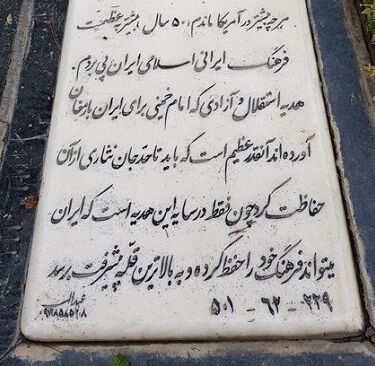 هرچه بیشتر در آمریکا ماندم، ۵۰ سال، بیشتر به عظمت
فرهنگ ایرانی اسلامی ایران پی بردم.
هدیه استقلال و آزادی که امام خمینی برای ایران به ارمغان
آورده‌اند آنقدر عظیم است که باید تا حد جان نثاری از آن
حفاظت کرد چون فقط در سایه این هدیه است که ایران
میتواند فرهنگ خود را حفظ کرده و به بالاترین قله پیشرفت برسد
۵۰۱ - ۶۲ - ۲۲۹